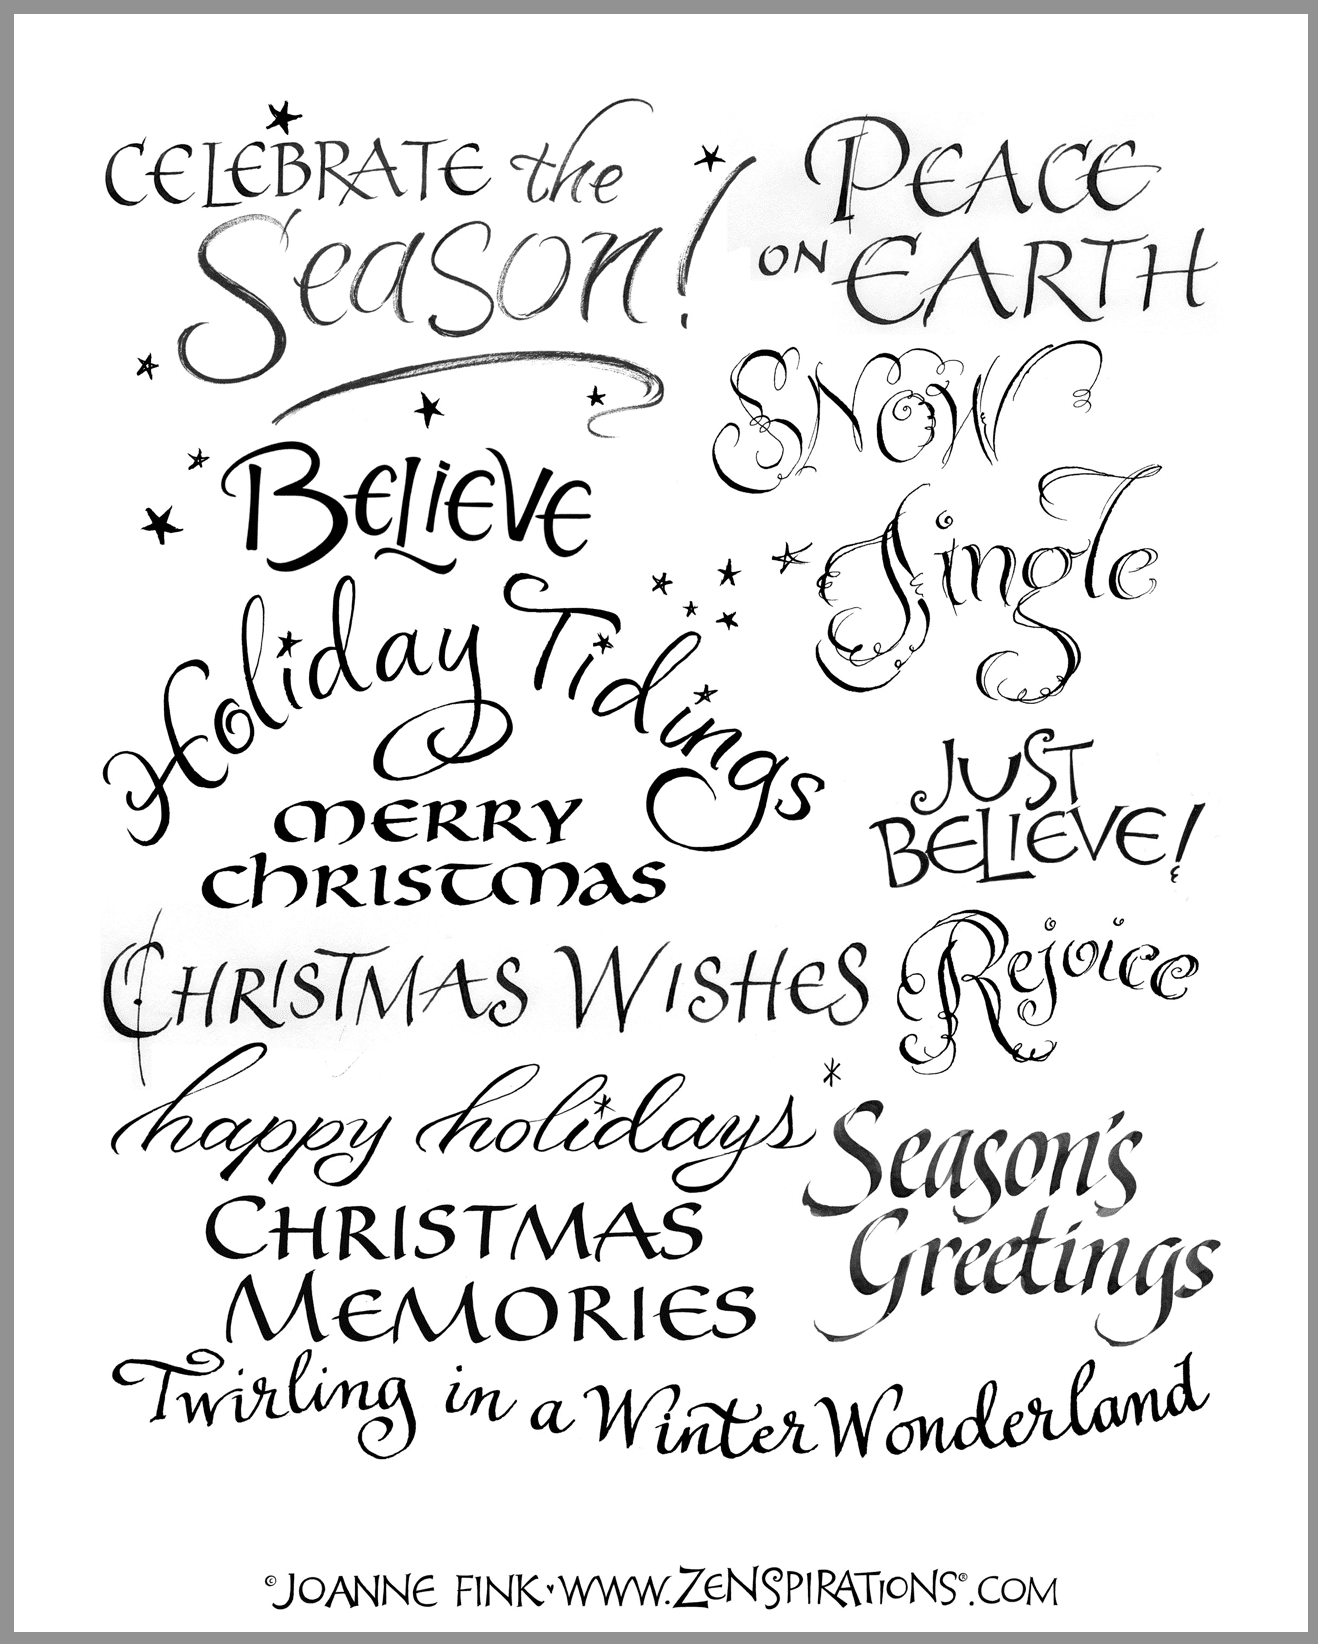 CELEBRATE the
Season!
PEACE
ON EARTH
SNOW
BELiEVE
Jingle
Holiday Tidings
JUST
BELIEVE!
merry
christmas
CHRISTMAS WISHES
Rejoice
happy holidays
Season's
Greetings
CHRISTMAS
MEMORIES
Twirling in a Winter Wonderland
©JOANNE FINK•WWW.ZENSPIRATiONS®.COM